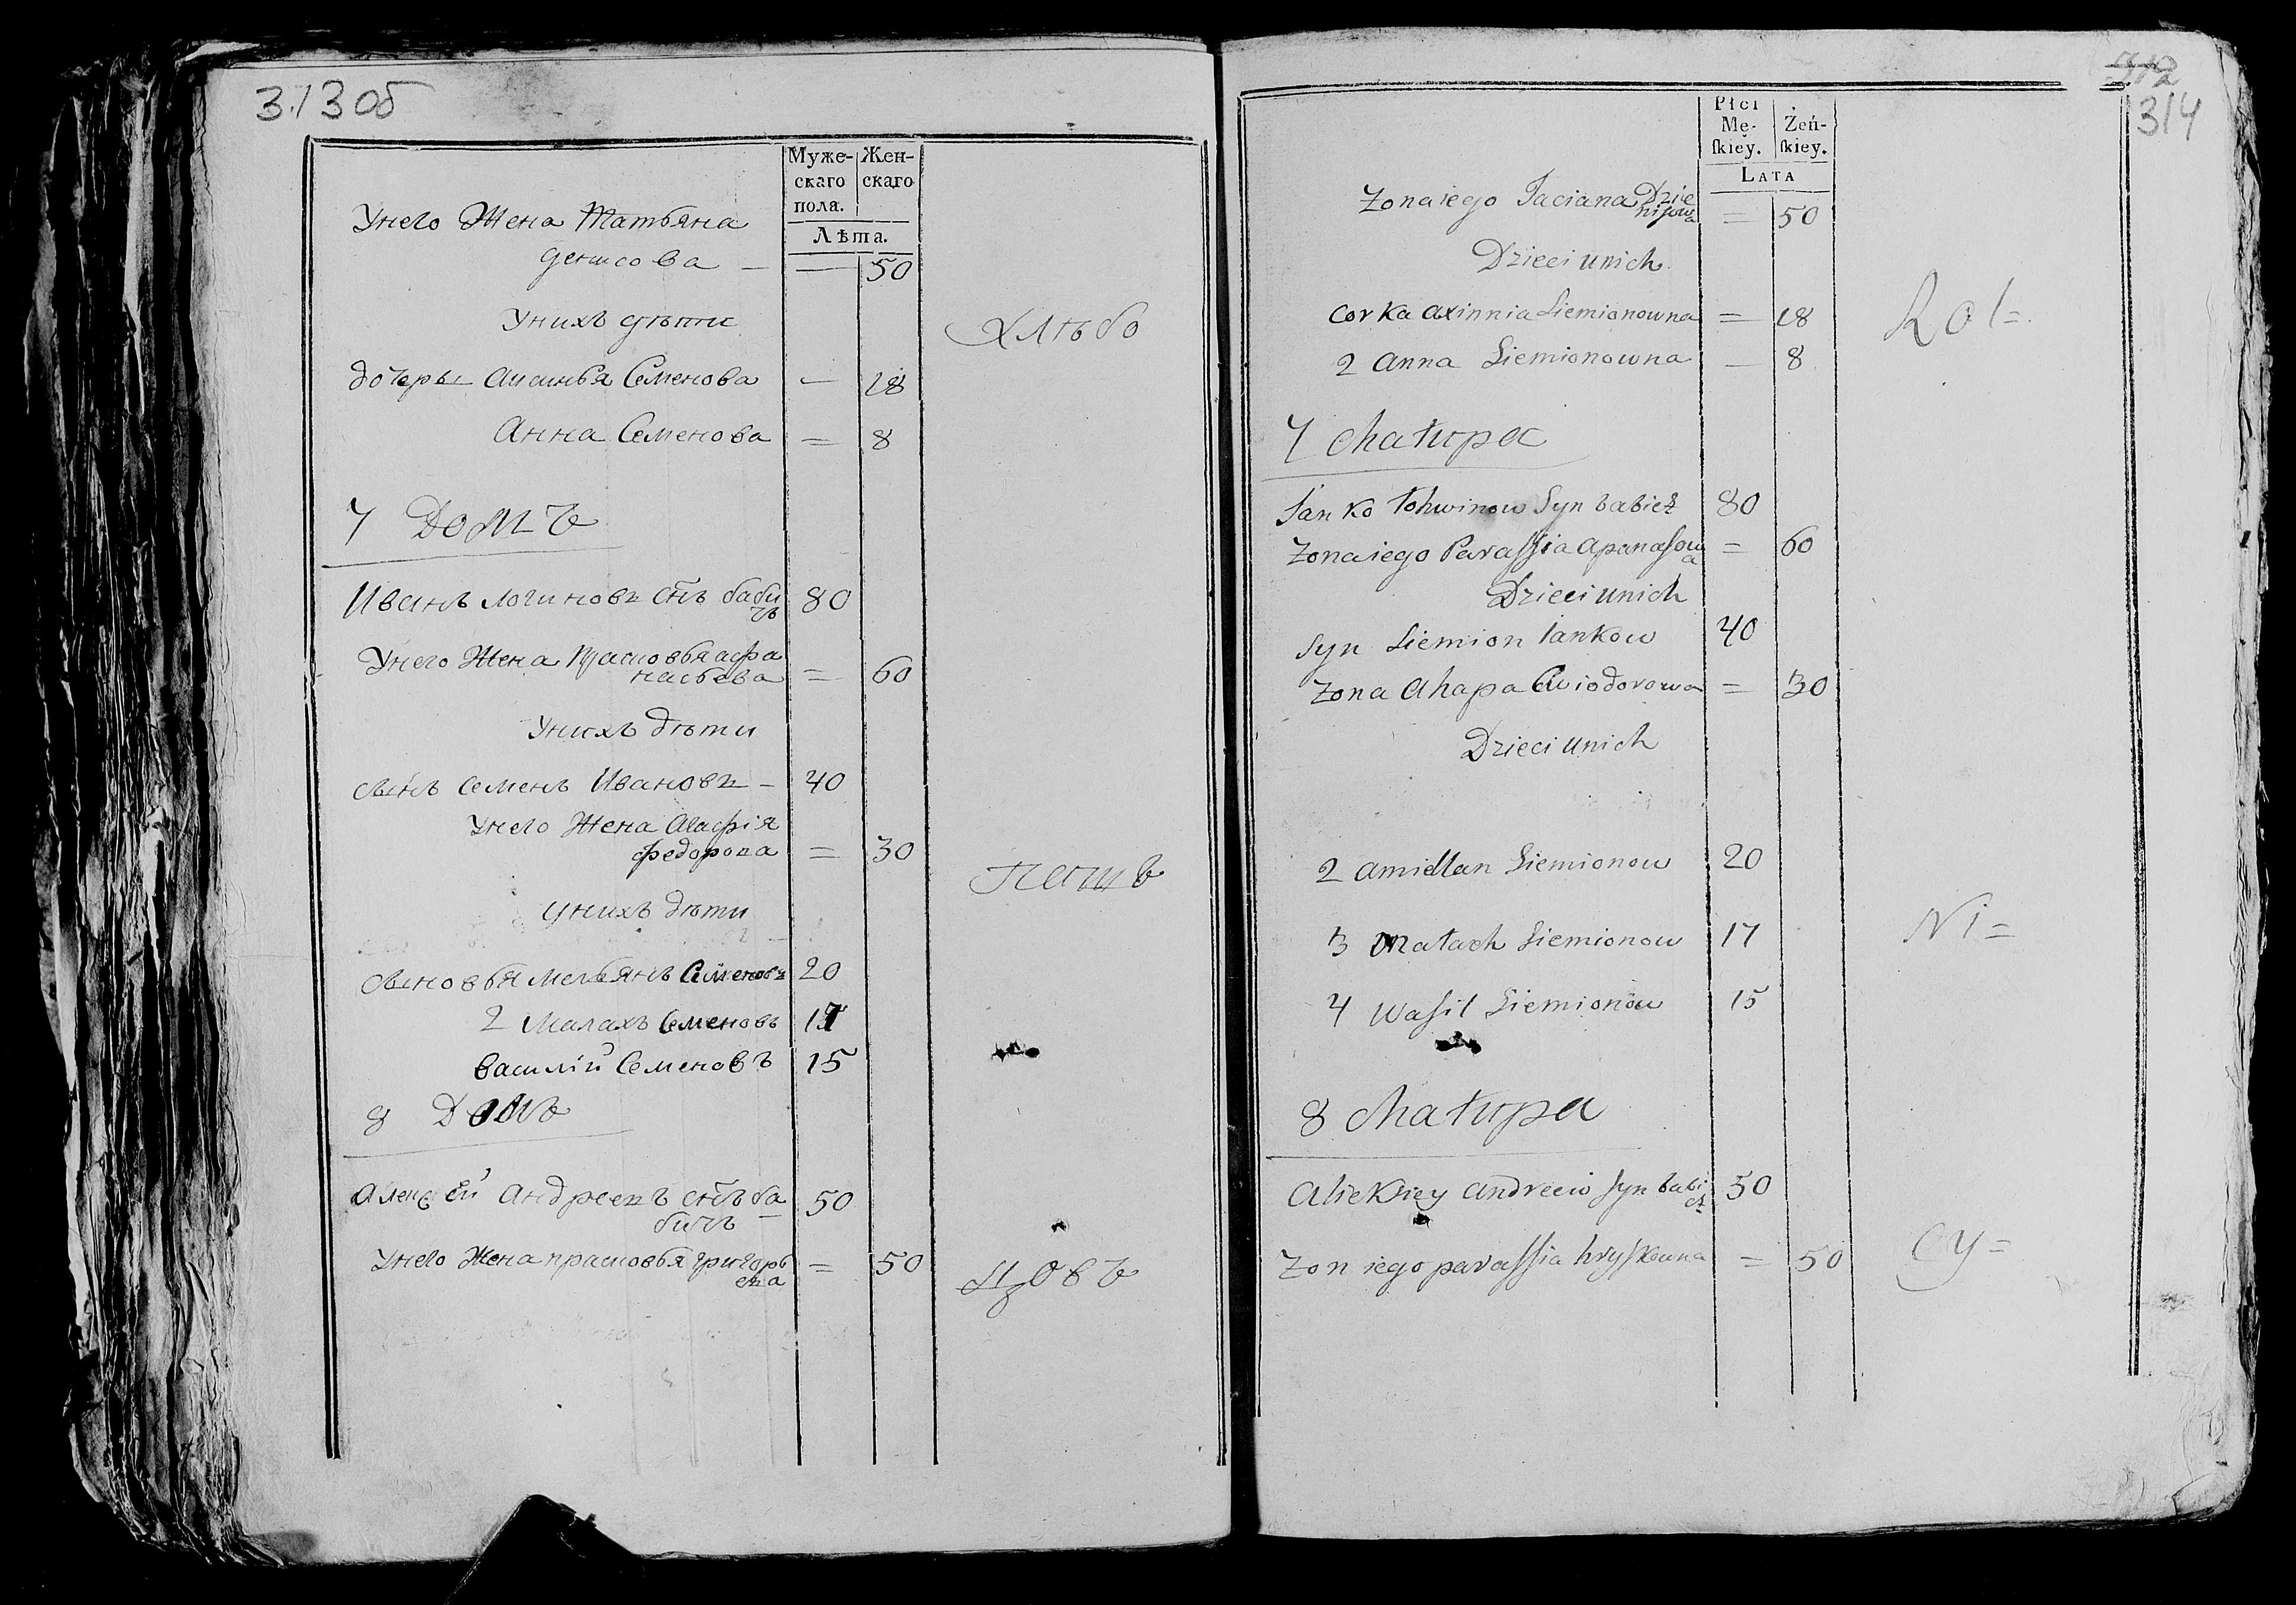 313 об
Муже-
скаго
пола.
Жен-
скаго
Лѣта.
Унего Жена Татьяна
денисова — — 50
Унихъ дѣти
дочеры Аксинья Семенова — 18
Анна Семенова = 8
Хлѣбо
7 Домъ
Иванъ логиновъ снъ баби
чъ 80
Унего Жена Прасковья афа
насьева = 60
Унихъ дѣти
сынъ Семенъ Ивановъ — 40
Унего Жена Агафія
федорова = 30
Унихъ дѣти
Пашь
сыновья мельянъ Семеновъ 20
2 Малахъ Семеновъ 17
василій Семеновъ 15
8 Домъ
Алексѣй Андреевъ снъ ба
бичъ 50
Унего Жена прасковья григорь
ева = 50
цовъ
312
314
Płci
Mę-
ſkiey.
Żeń-
ſkiey.
Lata
Zona iego Taciana Dzie
nisowa = 50
Dzieci unich
Corka axinnia Siemionowna = 18
2 anna Siemionowna — 8
Rol=
7 chałupa
Janko Łohwinow Syn babicz 80
Zona iego Parassia apanasow
a = 60
Dzieci unich
Syn Siemion Jankow 40
Zona ahapa Chwiodorowa = 30
Dzieci unich
2 amiellan Siemionow 20
3 Małach Siemionow 17
Ni=
4 Wasil Siemionow 15
8 chałupa
aliexiey andreeiw syn babi
cz 50
Zon iego parassia hryszkowna = 50
cy=